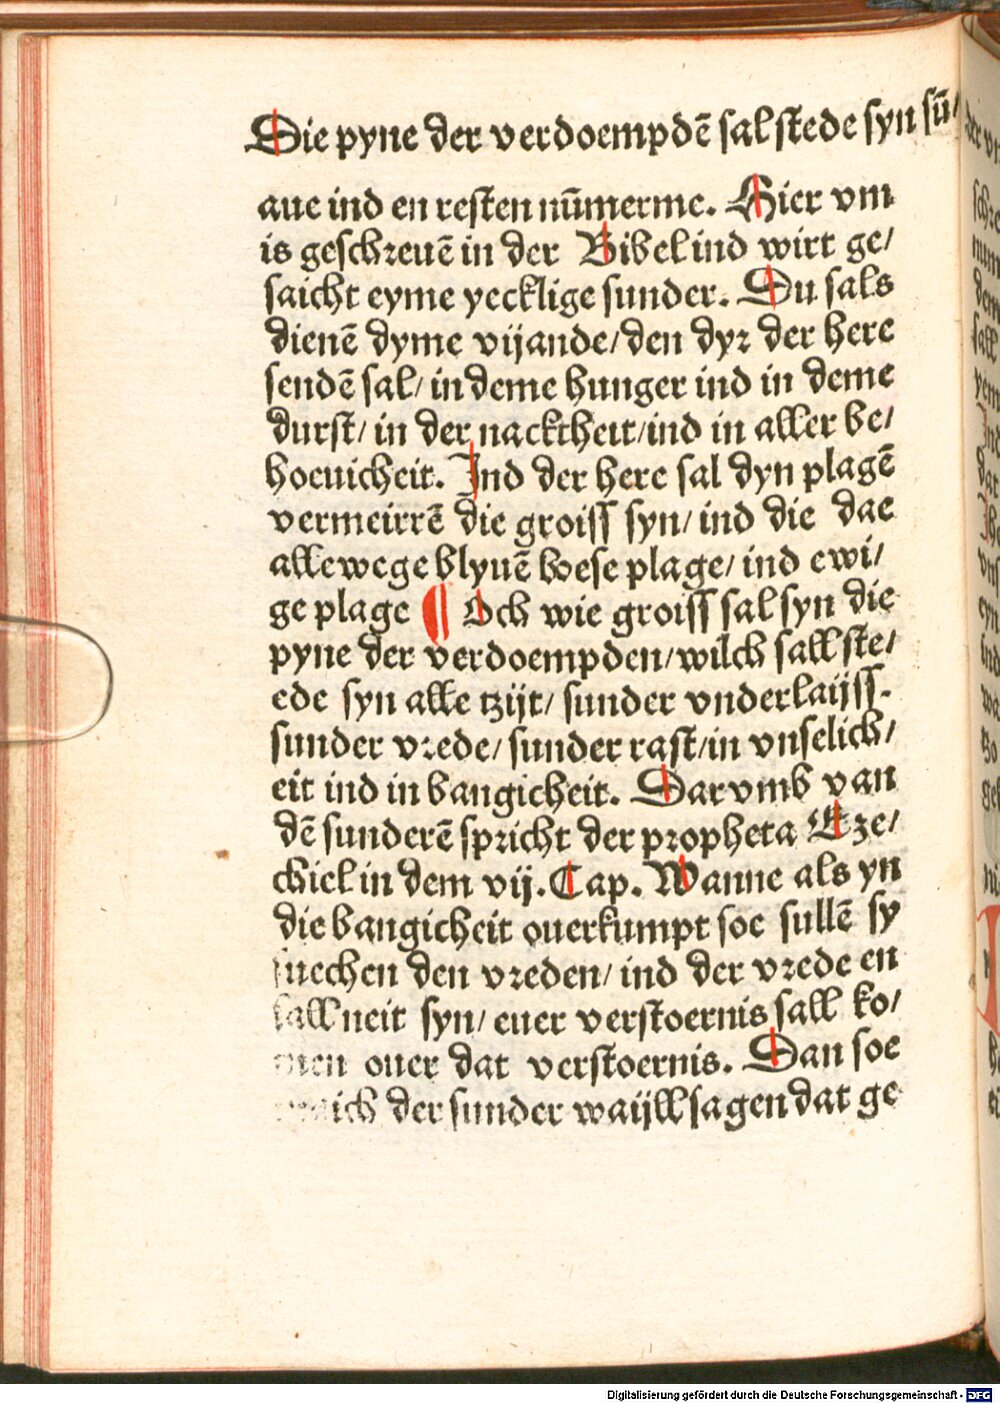 Die pyne der verdoempdē sal stede syn sū/
aue ind en resten nūmerme. Hier vm
is geschreuē in der Bibel ind wirt ge/
saicht eyme yecklige sunder. Du sals
dienē dyme vijande/ den dyr der here
sendē sal/ in deme hunger ind in deme
durst/ in der nacktheit/ ind in aller be/
hoeuicheit. Ind der here sal dyn plagē
vermeirrē die groiss syn/ ind die dae
allewege blyuē boese plage/ ind ewi/
ge plage ¶ Och wie groiss sal syn die
pyne der verdoempden/ wilch sall ste/
ede syn alle tzijt/ sunder vnderlaijss.
sunder vrede/ sunder rast/ in vnselich/
eit ind in bangicheit. Dar vmb van
dē sunderē spricht der propheta Eze/
chiel in dem vij. Cap. Wanne als yn
die bangicheit ouerkumpt soe sullē sy
suechen den vreden/ ind der vrede en
sall neit syn/ euer verstoernis sall ko/
men ouer dat verstoernis. Dan soe
der sunder waijll sagen dat ge
Digitalisierung gefördert durch die Deutsche Forschungsgemeinschaft - DFG